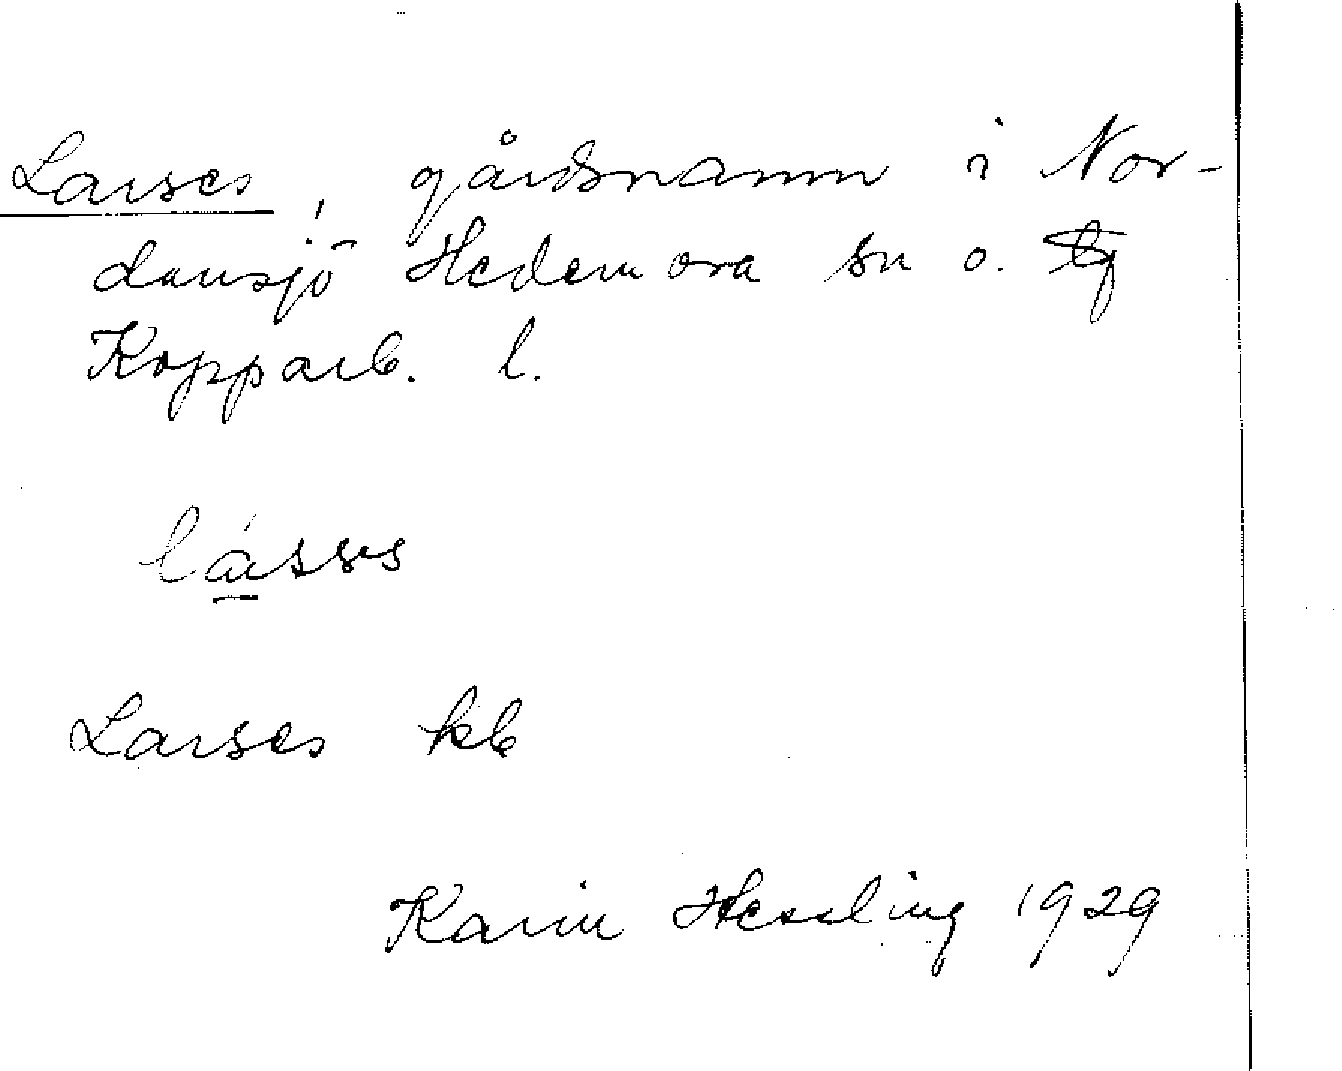 Larses, gårdsnamn i Nor-
dansjö Hedemora sn o. tg
Kopparb. l.
lásses
Larses kb
Karin Hessling 1929